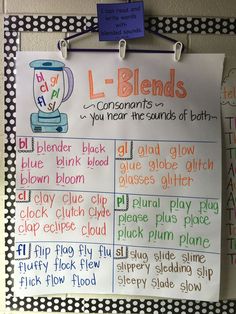 I can read and
write words with
blended sounds.
bl cl gl
pl
fl sl
L-Blends
~Consonants~
you hear the sounds of both~
bl blender black
blue blink blood
blown bloom
gl glad glow
glue globe glitch
glasses glitter
cl clay clue clip
clock clutch Clyde
clap eclipse cloud
pl plural play plug
please plus place
pluck plum plane
fl flip flag fly flu
fluffy flock flew
flick flow flood
sl slug slide slime
slippery sledding slip
sleepy slade slow